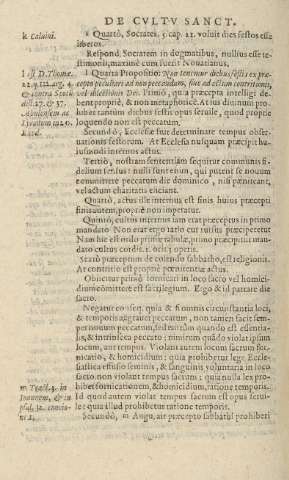 DE CVLTV SANCT.
k Caluini.
k Quartò, Socrates 5. cap. 22. voluit dies festos esse
liberos.
Respond. Socratem in dogmatibus, nullius esse te-
stimonij, maximè cum fuerit Nouatianus.
Quarta Propositio. Non tenemur diebus festis ex præ-
cepto peculiari ad non peccandum, siue ad actum contritionis,
vel dilectionis Dei. Primò, quia præcepta intelligi de-
bent propriè, & non metaphoricè. At ius diuinum pro-
hibet tantùm diebus festis opus seruile, quod propriè
loquendo non est peccatum.
Secundò, Ecclesiæ fuit determinare tempus obser-
uationis festorum. At Ecclesia nusquam præcipit hu-
iusmodi internos actus.
Tertiò, nostram sententiam sequitur communis fi-
delium sensus: nulli sunt enim, qui putent se nouum
committere peccatum die dominico, nisi pœniteant,
vel actum charitatis eliciant.
Quartò, actus ille internus est finis huius præcepti
finis autem propriè non imperatur.
Quintò, cultus internus iam erat præceptus in primo
mandato Non erat ergo
Nam hic est ordo
dato cultus cordis.
præceptum de colendo sabbatho, est religionis.
At contritio est propriè pœnitentiæ actus.
in loco sacro vel homici-
dium committere est sacrilegium. Ergo & id patrare die
sacro.
Negatur & finnis circunstantia loci,
& temporis aggrauet peccatum, non tamen facit sem-
per nouum peccatum, sed tantùm quando est essentia-
lis, & intrinseca præcepto: nimirum quādo violat ipsum
locum, aut tempus. Violant autem locum sacrum for-
nicatio, & homicidium: quia prohibetur lege Eccle-
siastica effusio seminis, & sanguinis voluntaria in loco
sacro non violant tempus sacrum: quia nulla lex pro-
hibet fornicationem, & homicidium, ratione temporis.
Id quod autem violat tempus sacrum est opus serui-
le: quia illud prohibetur ratione temporis.
m Tract. 3. in
Ioannem, & in
Secundò, m Augu. ait præcepto sabbathi prohiberi